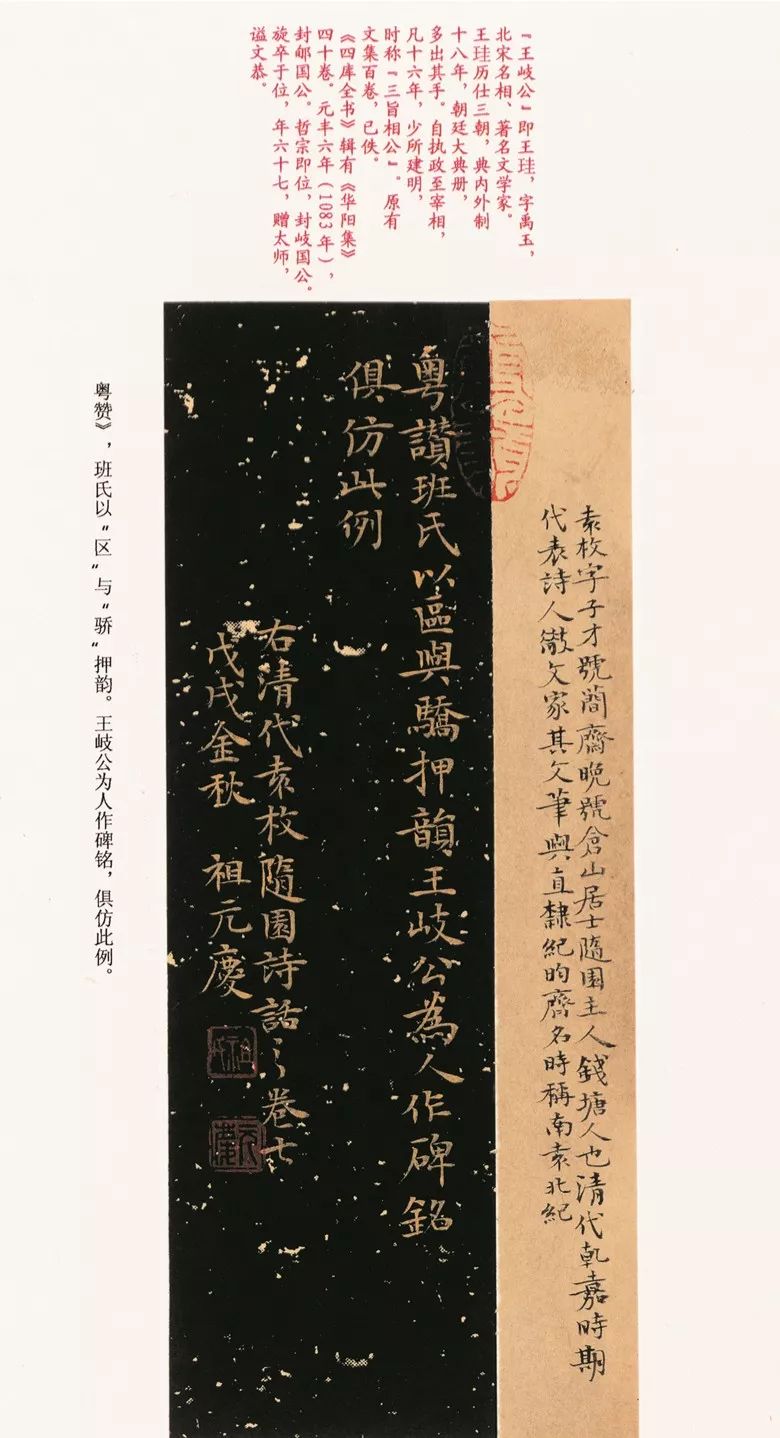 『王岐公』即王珪，字禹玉，
北宋名相、著名文学家。
王珪历仕三朝，典内外制
十八年，朝廷大典册，
多出其手。自执政至宰相，
凡十六年，少所建明，
时称『三旨相公』。原有
文集百卷，已佚。
《四库全书》辑有《华阳集》
四十卷。元丰六年（1083年），
封郇国公。哲宗即位，封岐国公。
旋卒于位，年六十七，赠太师，
谥文恭。
袁枚字子才號簡齋晚號倉山居士隨園主人錢塘人也清代乾嘉時期
代表詩人散文家其文筆與直隸紀昀齊名時稱南袁北紀
粤讚班氏以區與驕押韻王岐公為人作碑銘
俱仿此例
右清代袁枚隨園詩話之卷七
戊戌金秋 祖元慶
粤赞》，班氏以“区”与“骄”押韵。王岐公为人作碑铭，俱仿此例。